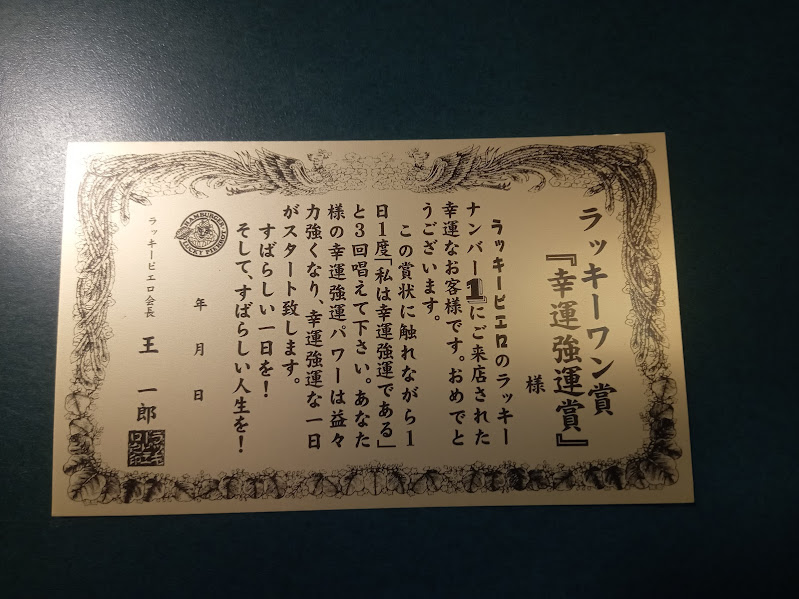 ラッキーワン賞
『幸運強運賞』
様
ラッキーピエロのラッキー
ナンバー1にご来店された
幸運なお客様です。おめでと
うございます。
この賞状に触れながら1
日1度「私は幸運強運である」
と3回唱えて下さい。あなた
様の幸運強運パワーは益々
力強くなり、幸運強運な一日
がスタート致します。
すばらしい一日を!
そして、すばらしい人生を!
年 月 日
HAMBURGER
LUCKY PIERROT
ラッキーピエロ会長 王 一郎